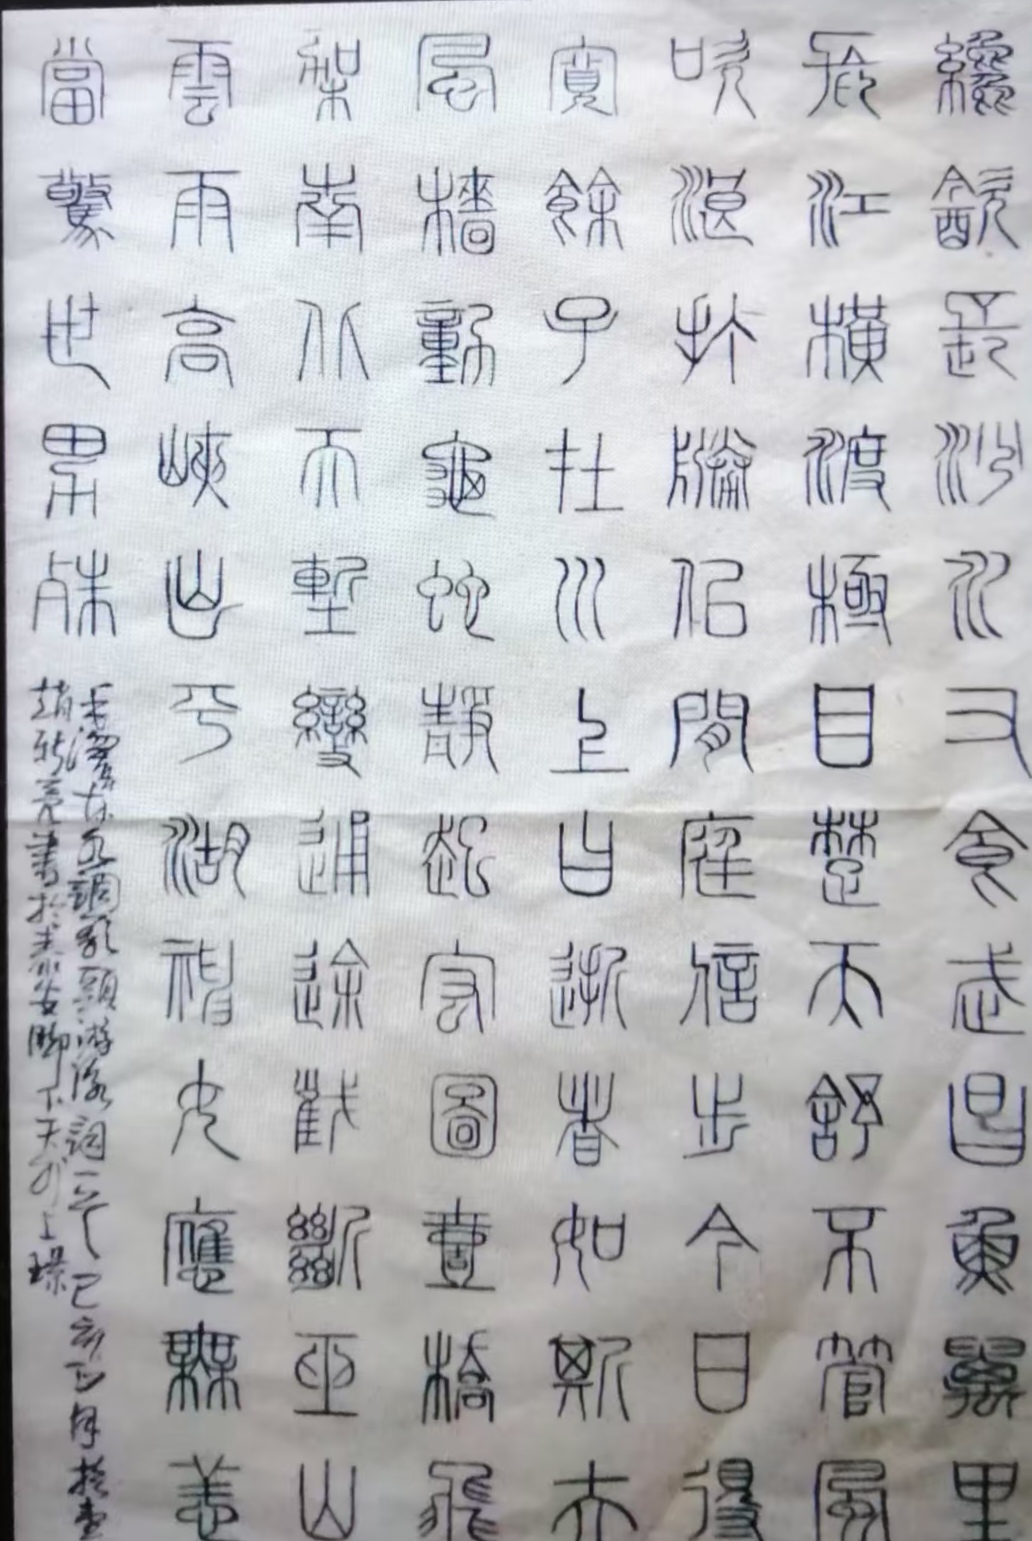 纔飲長沙水又食武昌魚萬里
長江橫渡極目楚天舒不管風
吹浪打勝似閒庭信步今日得
寬餘子在川上曰逝者如斯夫
風檣動龜蛇靜起宏圖一橋飛
架南北天塹變通途截斷巫山
雲雨高峽出平湖神女應無恙
當驚世界殊
毛澤東水調歌頭游泳詞一首己亥正月於
趙 書於泰山腳下天外